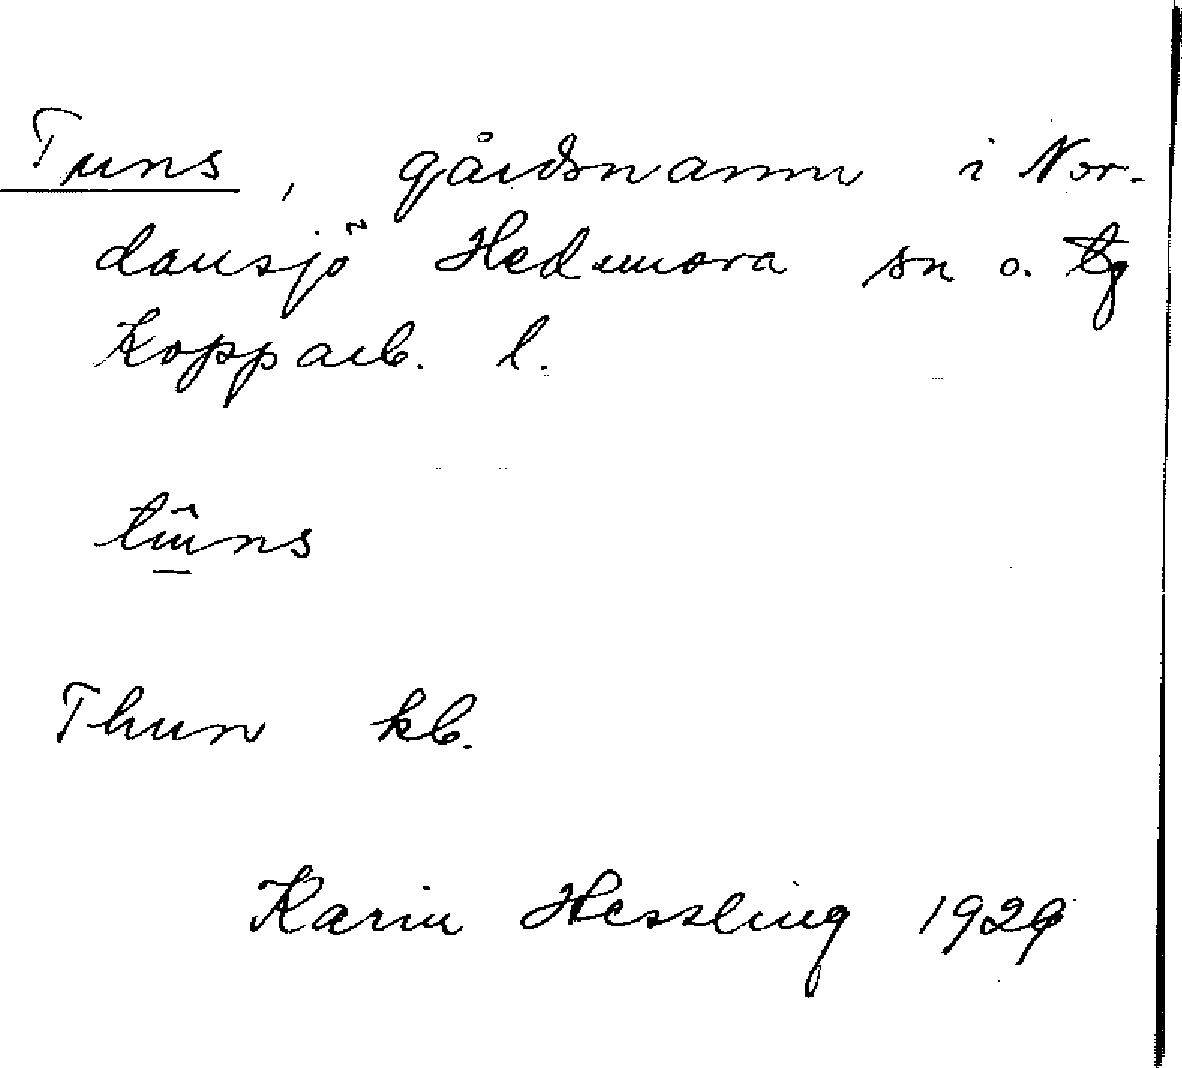 Tuns, gårdsnamn i Nor-
dansjö Hedemora sn o. tg
Kopparb. l.
tûns
Thun kb.
Karin Hessling 1929